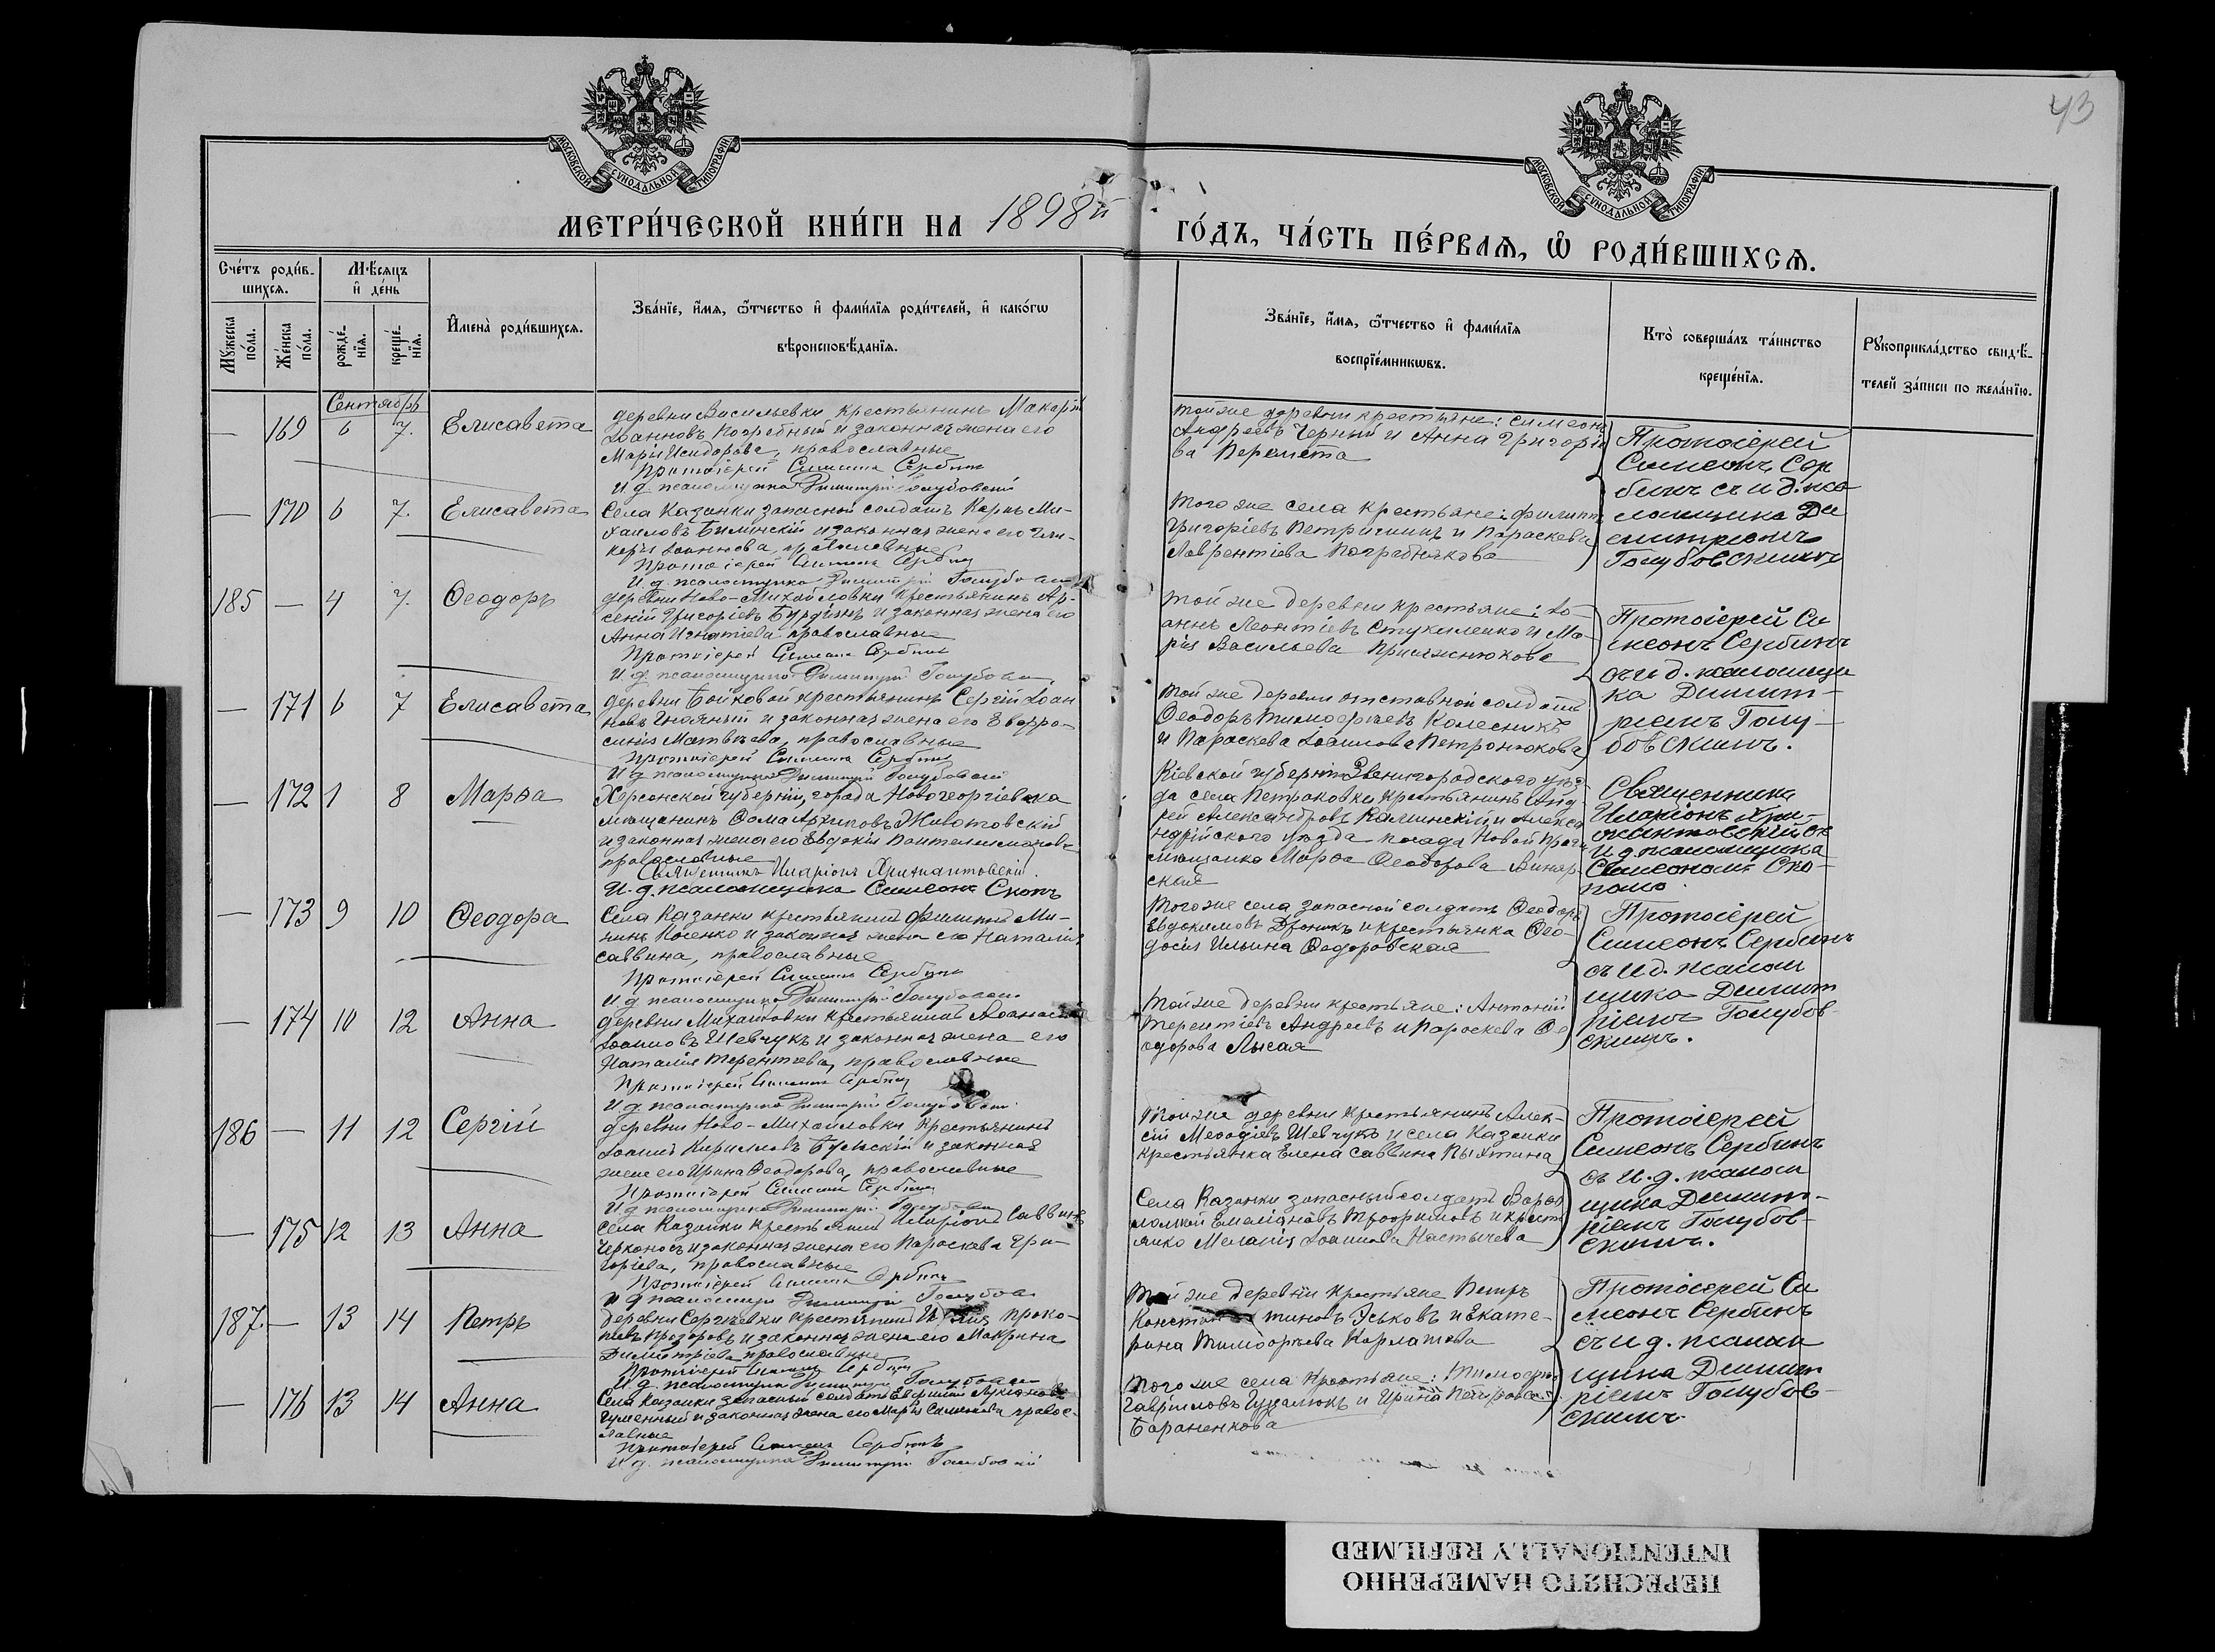 43
МОСКОВСКОЙ СѴНОДАЛЬНОЙ ТИПОГРАФІИ
МОСКОВСКОЙ СѴНОДАЛЬНОЙ ТИПОГРАФІИ
МЕТРИ́ЧЕСКОЙ КНИ́ГИ НА 1898й
ГО́ДЪ, ЧА́СТЬ ПЕ́РВАѦ, Ѡ РОДИ́ВШИХСѦ.
Сче́тъ роди́в-
шихсѧ.
Мꙋ́жеска по́ла.
Же́нска по́ла.
Мѣ́сѧцъ и де́нь
рожде́-нїѧ.
креще́-нїѧ.
И҆мена̀ роди́вшихсѧ.
Зва́нїе, и҆́мѧ, ѻ҆́тчество и҆ фами́лїѧ роди́телей, и҆ како́гѡ
вѣроисповѣ́данїѧ.
Зва́нїе, и҆́мѧ, ѻ҆́тчество и҆ фами́лїѧ
воспрїе́мникѡвъ.
Кто̀ соверша́лъ та́инство
креще́нїѧ.
Рꙋкоприкла́дство свидѣ́-
телей за́писи по жела́нїю.
Сентябрь
— 169 6 7. Елисавета
деревни Васильевки крестьянинъ Макарій
Іоанновъ Погребный и законная жена его
Марія Исидорова, православные
Протоіерей Симеонъ Сербинъ
И. д. псаломщика Димитрій Голубовскій
той же деревни крестьяне: Симеонъ
Андреевъ Черный и Анна Григоріе
ва Перемета
Протоіерей
Симеонъ Сер
бинъ съ и д. пса
ломщика Ди
митріемъ
Голубовскимъ
— 170 6 7. Елисавета
Села Казанки запасной солдатъ Карпъ Ми-
хаиловъ Билинскій и законная жена его Гли-
керія Іоаннова, православные
Протоіерей Симеонъ Сербинъ
И. д. псаломщика Димитрій Голубовскій
того же села крестьяне: Филиппъ
Григоріевъ Петришинъ и Параскева
Лаврентіева Погребнякова
185 — 4 7. Ѳеодоръ
деревни Ново-Михайловки крестьянинъ Ар-
сеній Григоріевъ и законная жена его
Анна Игнатіева православные
Протоіерей Симеонъ Сербинъ
И. д. псаломщика Димитрій Голубовскій
той же деревни крестьяне: Іо-
аннъ Леонтіевъ Стукаленко и Ма-
рія Васильева Присяжнюкова
Протоіерей Си
меонъ Сербинъ
съ и д. псаломщи
ка Димит-
ріемъ Голу-
бовскимъ.
— 171 6 7 Елисавета
деревни Бойковой крестьянинъ Сергій Іоан
новъ Гнояный и законная жена его Евфро-
синія Матвѣева, православные
Протоіерей Симеонъ Сербинъ
И д псаломщика Димитрій Голубовскій
той же деревни отставной солдатъ
Ѳеодоръ Тимоѳеевъ Колесникъ
и Параскева Іоаннова Петронюкова
— 172 1 8 Марѳа
Херсонской губерніи, города Новогеоргіевска
мѣщанинъ Ѳома Архиповъ Животовскій
и законная жена его Евдокія Пантелеимонова
православные
Священникъ Иларіонъ
И. д. псаломщика Симеонъ Скопъ
Кіевской губерніи Звенигородского уѣз
да села Петраковки крестьянинъ Анд
рей Александровъ Калинскій и Алекса
ндрійского уѣзда посада Новой Праги
мѣщанка Марѳа Ѳеодорова Винар-
ская
Священника
Иларіонъ
И д псаломщика
Симеономъ Ско-
помъ
— 173 9 10 Ѳеодора
Села Казанки крестьянинъ Филиппъ Ми-
нинъ Косенко и законная жена его Наталія
Саввина, православные
Протоіерей Симеонъ Сербинъ
И д. псаломщика Димитрій Голубовскій
Того же села запасной солдатъ Ѳеодоръ
Евдокимовъ и крестьянка Ѳео-
досія Ильина Ѳедоровская
Протоіерей
Симеонъ Сербинъ
съ и д. псалом
щика Димит
ріемъ Голубов-
скимъ.
— 174 10 12 Анна
деревни Михайловки крестьянинъ Аѳанасій
Іоанновъ Шевчукъ и законная жена его
Наталія Терентьева, православные
Протоіерей Симеонъ Сербинъ
И д. псаломщика Димитрій Голубовскій
той же деревни крестьяне: Антоній
Терентіевъ Андреевъ и Параскева Ѳе
одорова Лысая
186 — 11 12 Сергій
деревни Ново-Михайловки крестьянинъ
Іоаннъ Кирилловъ и законная
жена его Ирина Ѳеодорова, православные
Протоіерей Симеонъ Сербинъ
И д псаломщика Димитрій Голубовскій
той же деревни крестьянинъ Алек-
сій Меѳодіевъ Шевчукъ и села Казанки
крестьянка Елена Саввина Пыхтина
Протоіерей
Симеонъ Сербинъ
съ и. д. псалом
щика Димит-
ріемъ Голубов-
скимъ.
— 175 12 13 Анна
Села Казанки крестьянинъ Иларіонъ Саввинъ
Черконосъ и законная жена его Параскева Гри-
горіева, православные
Протоіерей Симеонъ Сербинъ
И д псаломщика Димитрій Голубовскій
Села Казанки запасный солдатъ Варѳо
ломей Емеліановъ Трофимовъ и крест
янка Меланія Іоаннова
187. — 13 14 Петръ
деревни Сергѣевки крестьянинъ Проко-
піевъ Прозоровъ и законная жена его Макрина
Димитріева православные
Протоіерей Симеонъ Сербинъ
И д. псаломщика Димитрій Голубовскій
той же деревни крестьяне Петръ
Константиновъ Уськовъ и Екате-
рина Тимоѳеева
Протоіерей Си
меонъ Сербинъ
съ и д. псалом
щика Димит
ріемъ Голубов-
скимъ
— 176 13 14 Анна
Села Казанки запасный солдатъ Лукіановъ
Гуменный и законная жена его Марія Симеонова правос-
лавные
Протоіерей Симеонъ Сербинъ
И д. псаломщика Димитрій Голубовскій
того же села крестьяне: Тимоѳей
Гавриловъ и Ирина Петрова
Бараненкова
ПЕРЕСНЯТО НАМЕРЕННО
INTENTIONALLY REFILMED